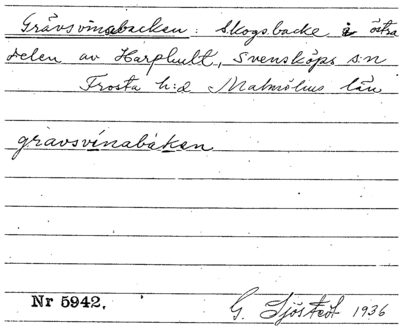 Gråvsvinabacken: Skogsbacke i östra
delen av Harphult, Svensköps s:n
Frosta h:d Malmöhus län
gravsvinabaken
Nr 5942.
G. Sjöstedt 1936